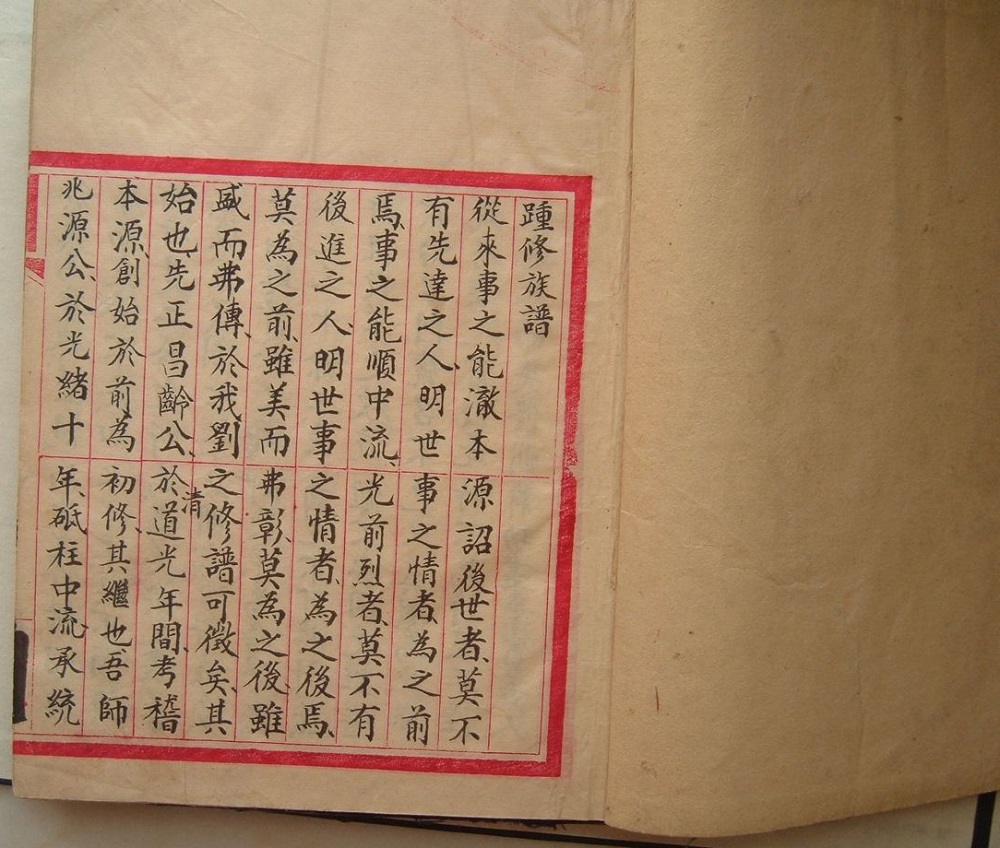 踵修族譜
從來事之能澈本源詔後世者、莫不
有先達之人、明世事之情者、為之前
焉、事之能順中流、光前烈者、莫不有
後進之人、明世事之情者、為之後焉、
莫為之前、雖美而弗彰、莫為之後、雖
盛而弗傳、於我劉之修譜可徵矣、其
始也、先正昌齡公、於清道光年間、考稽
本源、創始於前為初修、其繼也吾師
兆源公、於光緒十年、砥柱中流、承統